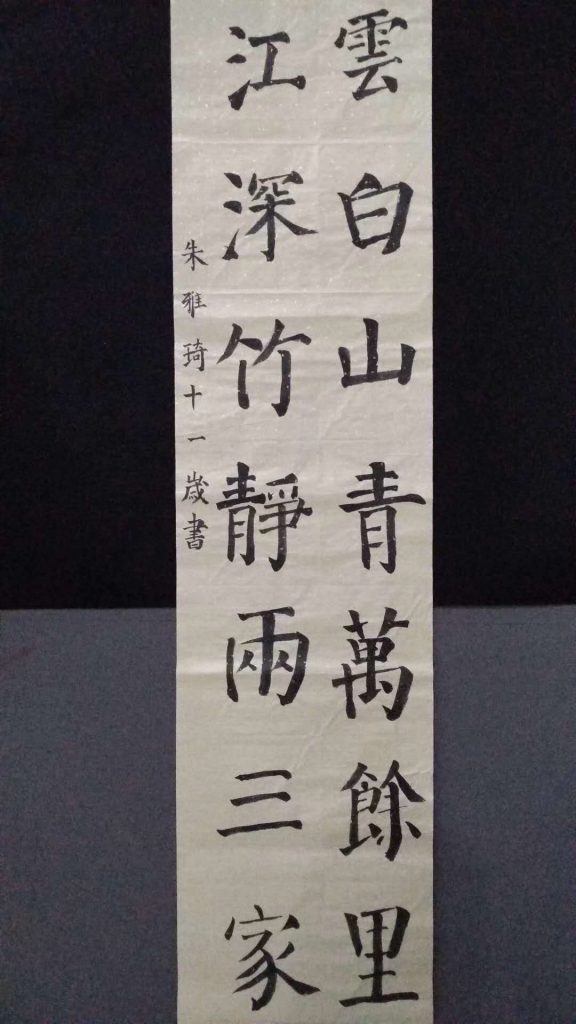 雲白山青萬餘里
江深竹靜兩三家
朱雅琦十一歲書